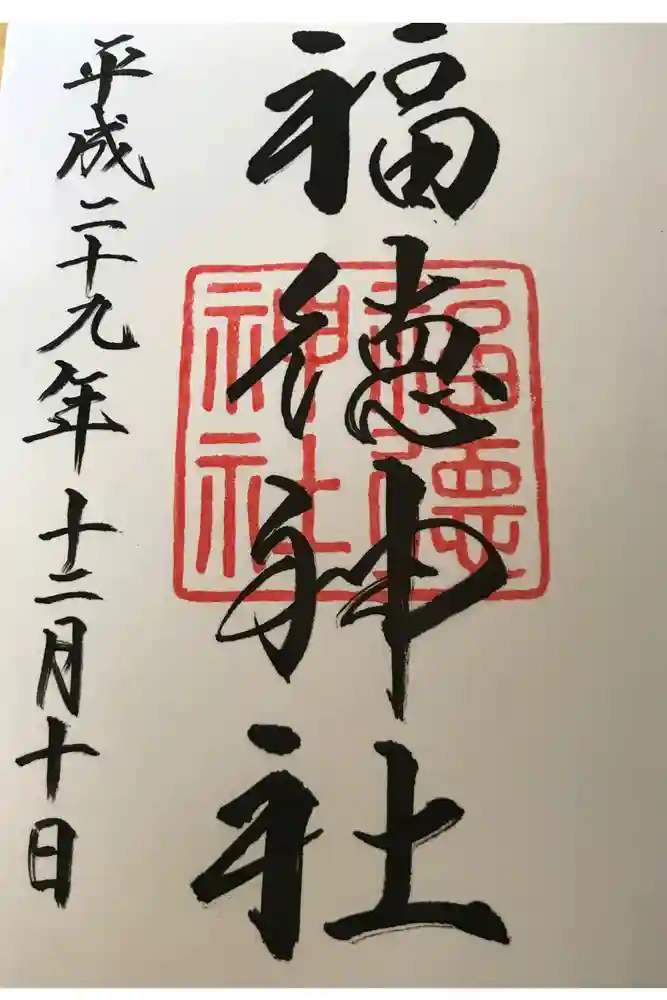 福徳神社
福徳
神社
平成二十九年十二月十日